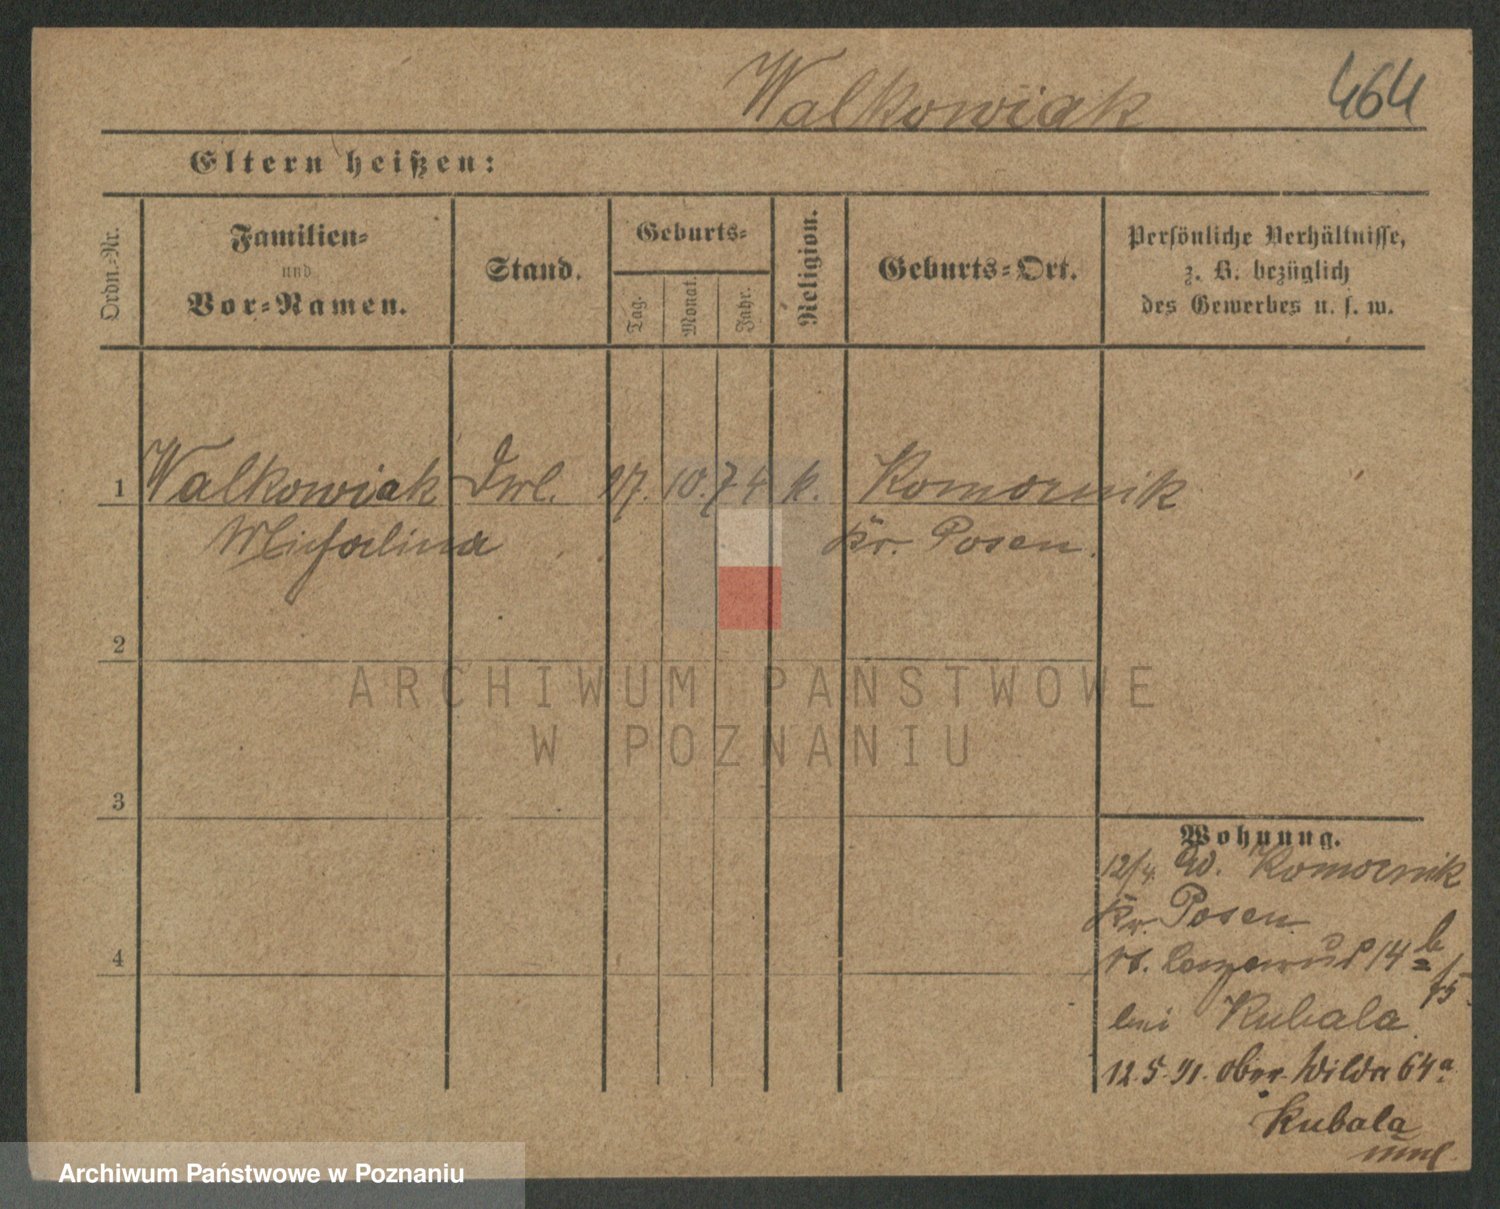 Walkowiak 464
Eltern heißen:
Ordn.-Nr.
Familien-
und
Vor-Namen.
Stand.
Geburts-
Tag.
Monat.
Jahr.
Religion.
Geburts-Ort.
Persönliche Verhältnisse,
z. B. bezüglich
des Gewerbes u. s. w.
1 Walkowiak 10. 74 k. Komornik
Kr. Posen.
2
ARCHIWUM PAŃSTWOWE
W POZNANIU
3
Wohnung.
12/4. Komornik
Kr. Posen
4
14 b
Kubala
12.5.91. Ober Wilda 64a.
Kubala
Archiwum Państwowe w Poznaniu